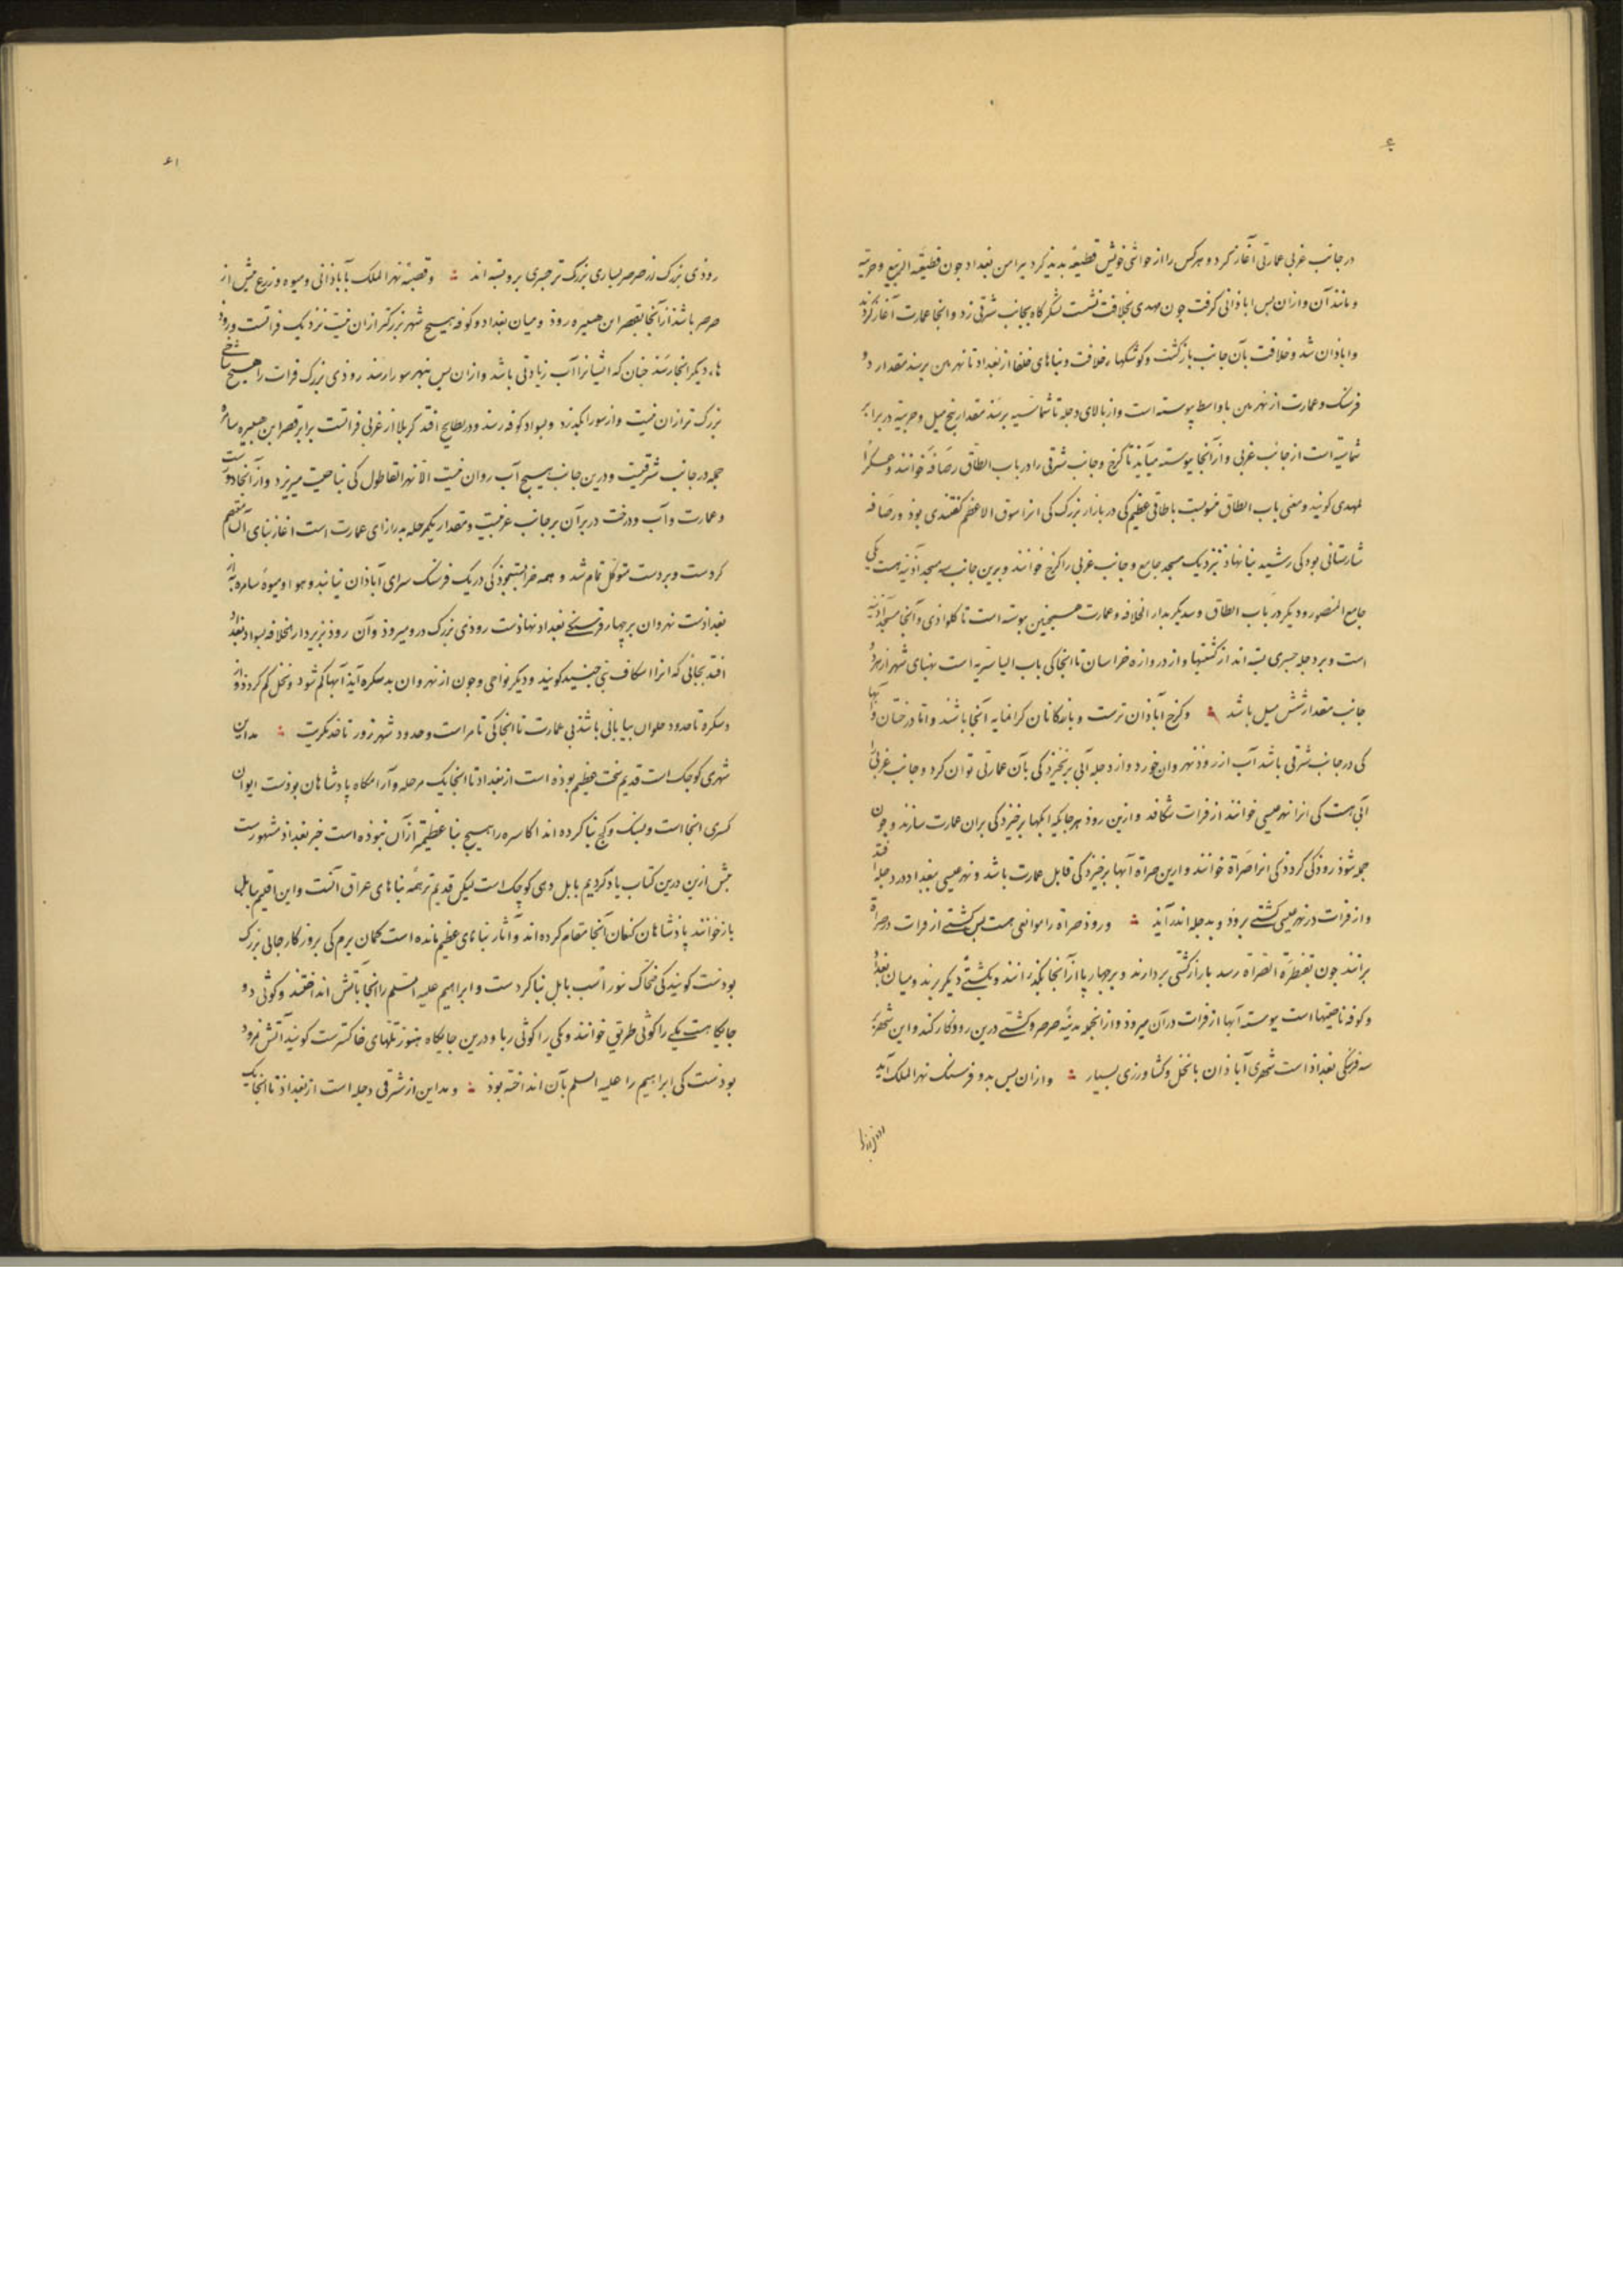 در جانب غربی عمارتی آغاز کرد و هر کس را از حواشی خویش قطیعه بدید کرد پیرامن بغداد جون قطیعة الربیع و حربیه
و مانند آن و از ان بس اباذانی کرفت جون مهدی بخلافت نشست لشکرگاه بجانب شرقی زد و انجا عمارت آغاز کردند
و اباذان شد و خلافت بآن جانب بازکشت و کوشکها خلافت و بناهای خلفا از بغداد تا نهربین برسد مقدار دو
فرسنک و عمارت از نهربین با واسط پیوسته است و از بالای دجله تا شماسیه برسد مقدار پنج میل و حربیه در برابر
شماسیه است از جانب غربی و از آنجا پیوسته میآید تا کرخ و جانب شرقی را در باب الطاق رصافه خوانند و عسکر ا
لمهدی کویند و معنی باب الطاق منسوبست باطاقی عظیم کی در بازار بزرک کی انرا سوق الاعظم کفتندی بوذ و رصافه
شارستانی بود کی رشید بنا نهاد نزدیک مسجد جامع و جانب غربی را کرخ خوانند و برین جانب سه مسجد آذینه هست یکی
جامع المنصور و دیکر در باب الطاق و سدیکر بدار الخلافه و عمارت همچنین پیوسته است تا کلواذی و آنجا مسجد آذینه
است و بر دجله جسری بسته اند از کشتیها و از دروازه خراسان تا انجا کی باب الیاسریه است پهنای شهر از هر دو
جانب مقدار شش میل باشد و کرخ آباذان ترست و بازرکانان کرانمایه آنجا باشند و اما درختان و آبها
کی در جانب شرقی باشد آب از روذ نهروان خورد و از دجله آبی برنخیزد کی بآن عمارتی توان کرد و جانب غربی را
آبی هست کی انرا نهر عیسی خوانند از فرات شکافد و ازین روذ هر جایکه ابکها برخیزد کی بران عمارت سازند و جون
جمع شوذ روذکی کردد کی انرا صراة خوانند و ازین صراة آبها برخیزد کی قابل عمارت باشد و نهر عیسی ببغداد در دجله افتد
و از فرات در نهر عیسی کشتی بروذ و بدجله اندر آید و روذ صراة را موانعی هست بس کشتی از فرات در صراة
برانند جون بقنطرة الصراة رسد بار از کشتی بردارند و بر چهار پا از آنجا بکذرانند و بکشتی دیکر برند و میان بغداد
و کوفه ناحیتهاست پیوسته آبها از فرات در آن میروذ و از انجمله مدینه صرصر و کشتی درین روذ کار کند و این شهر بر
سه فرسنکی بغداد است شهری آباذان با نخل و کشاورزی بسیار و از ان بس بدو فرسنک نهر الملک آید
روذی بزرک
روذی بزرک از صرصر بسیاری بزرک تر جسری برو بسته اند و قصبه نهر الملک بآباذانی و میوه و زرع بیش از
صرصر باشد از آنجا بقصر ابن هبیره روذ و میان بغداد و کوفه هیچ شهر بزرکتر از ان نیست نزدیک فراتست و روذ
هاء دیکر انجا رسند جنان که ایشانرا آب زیادتی باشد و از ان بس بنهر سورا رسد روذی بزرک فرات را هیچ شاخی
بزرک تر از ان نیست و از سورا بکذرد و بسواد کوفه رسد و در بطایح افتد کربلا از غربی فراتست برابر قصر ابن هبیره سامره
جمله در جانب شرقیست و درین جانب هیچ آب روان نیست الا نهر القاطول کی بناحیت میریزد و از آنجا دورست
و عمارت و آب و درخت در برابر آن بر جانب غربیست و مقدار یکمرحله بدرازای عمارت است آغاز بنای آن معتصم
کردست و بر دست متوکل تمام شد و همه خرابست جنانک در یک فرسنک سرای آباذان نیابند و هوا و میوه سامره به از
بغدادست نهروان بر چهار فرسنکی بغداد نهاذست روذی بزرک درو میروذ و آن روذ بزیر دار الخلافه بسواد بغداد
افتد بجائی که انرا اسکاف بنی جنید کویند و دیکر نواحی و جون از نهروان بدسکره آید آبها کم شود و نخل کم کردد و از
دسکره تا حدود حلوان بیابانی باشد بی عمارت تا انجا کی تامراست و حدود شهرزور تا حد تکریت مداین
شهری کوچک است قدیم سخت عظیم بوذه است از بغداد تا انجا یک مرحله و آرامکاه پادشاهان بوذست ایوان
کسری انجاست و بسنک و کج بنا کرده اند اکاسره را هیچ بنا عظیمتر از آن نبوذه است خبر بغداد مشهورست
بیش ازین درین کتاب یاد کردیم بابل دهی کوچک است لیکن قدیم تر همه بناهای عراق آنست و این اقلیم ببابل
بازخوانند پاذشاهان کنعان آنجا مقام کرده اند و آثار بناهای عظیم مانده است کمان برم کی بروزکار جایی بزرک
بودست کویند کی ضحاک بیوراسب بابل بنا کردست و ابراهیم علیه السلم را انجا بآتش انداختند و کوثی دو
جایکاهست یکی را کوثی طریق خوانند و یکی را کوثی ربا و درین جایکاه هنوز تلهای خاکسترست کویند آتش نمرود
بودست کی ابراهیم را علیه السلم بآن انداخته بوذ و مداین از شرقی دجله است از بغداد تا انجا یک